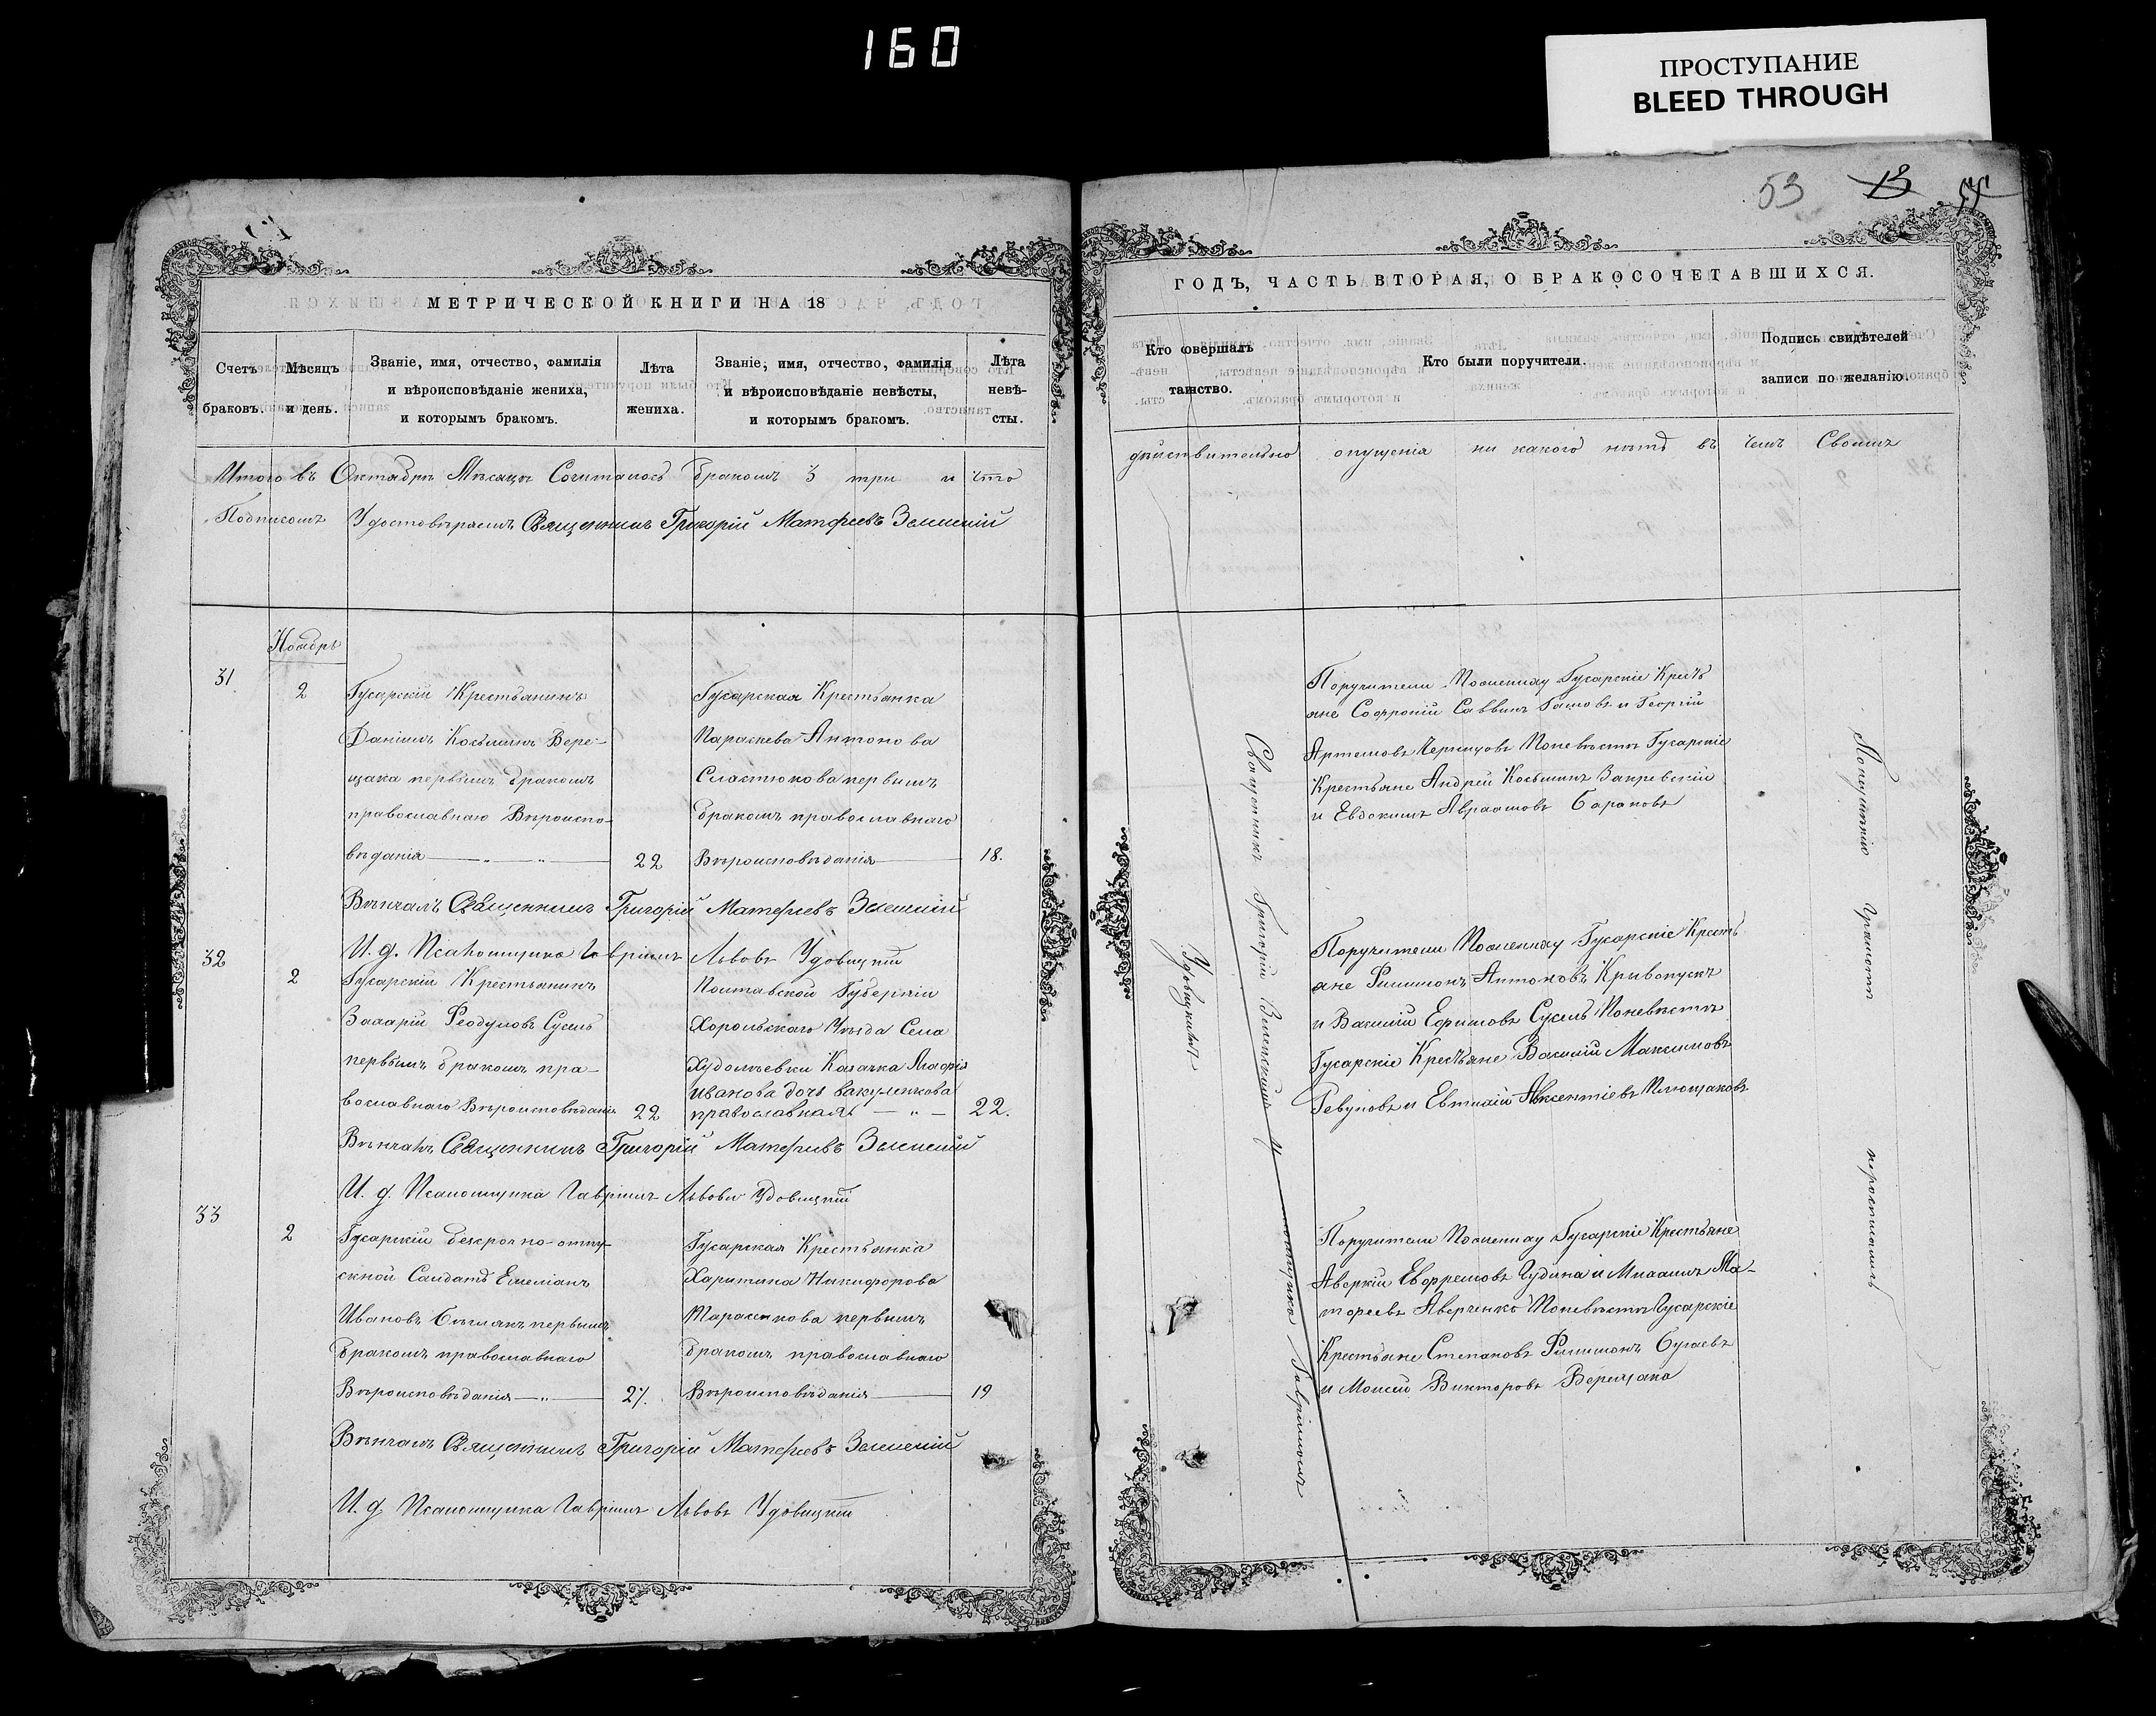 160
ПРОСТУПАНИЕ
BLEED THROUGH
53 13
МЕТРИЧЕСКОЙ КНИГИ НА 18
Счетъ браковъ.
Мѣсяцъ и день.
Званіе, имя, отчество, фамилія
и вѣроисповѣданіе жениха,
и которымъ бракомъ.
Лѣта
жениха.
Званіе, имя, отчество, фамилія
и вѣроисповѣданіе невѣсты,
и которымъ бракомъ.
Лѣта
невѣ-
сты.
Итого въ Октябрѣ Мѣсяцѣ Сочиталось бракомъ 3 три и что
Подписомъ Удостовѣряемъ Священникъ Григорій Матфеевъ
Ноябрь
31
2
Гусарскій Крестьянинъ
Даніилъ Косьминъ Вере-
щака первымъ бракомъ
православнаго Вѣроиспо-
вѣданія
22
Гусарская Крестьянка
Параскева Антонова
Сластюкова первымъ
бракомъ православнаго
Вѣроисповѣданія
18.
Вѣнчалъ Священникъ Григорій Матфеевъ
32
И. д. Псаломщика Гавріилъ Львовъ Удовицкій
2
Гусарскій Крестьянинъ
Феодуловъ
первымъ бракомъ пра-
вославнаго Вѣроисповѣданія
22
Полтавской Губерніи
Хорольскаго Уѣзда Села
Худолѣевки Казачка Марія
иванова дочь вакуленкова
православная
22.
Вѣнчалъ Священникъ Григорій Матфеевъ
И. д. Псаломщика Гавріилъ Львовъ Удовицкій
33
2
Гусарскій безсрочно-отпу-
скной Солдатъ Емеліанъ
Ивановъ первымъ
бракомъ православнаго
Вѣроисповѣданія
27.
Гусарская Крестьянка
Харитина Никифорова
Тарасенкова первымъ
бракомъ православнаго
Вѣроисповѣданія
19
Вѣнчалъ Священникъ Григорій Матфеевъ
И. д. Псаломщика Гавріилъ Львовъ Удовицкій
ГОДЪ, ЧАСТЬ ВТОРАЯ, О БРАКОСОЧЕТАВШИХСЯ.
Кто совершалъ
таинство.
Кто были поручители.
Подпись свидѣтелей
записи по желанію.
дѣйствительно опущенія ни какого нѣтъ въ чемъ Своимъ
Поручители По жениху Гусарскіе Кресть
яне Софроній Саввинъ и Георгій
Артемовъ По невѣстѣ Гусарскіе
Крестьяне Андрей Косьминъ Закревскій
и Евдокимъ Авраамовъ Барановъ
Поручители По жениху Гусарскіе Кресть
яне Филимонъ Антоновъ Кривопускъ
и Василій Ефимовъ По невѣстѣ
Гусарскіе Крестьяне Василій Максимовъ
Ревуновъ и Евтихій Авксентіевъ
Поручители По жениху Гусарскіе Крестьяне
Аверкій Евфремовъ Чудина и Михаилъ Ма-
тфеевъ Аверченко По невѣстѣ Гусарскіе
Крестьяне Степановъ Филимонъ Бугаевъ
и Моисей Викторовъ Верещака
Священникъ Григорій
Гавріилъ